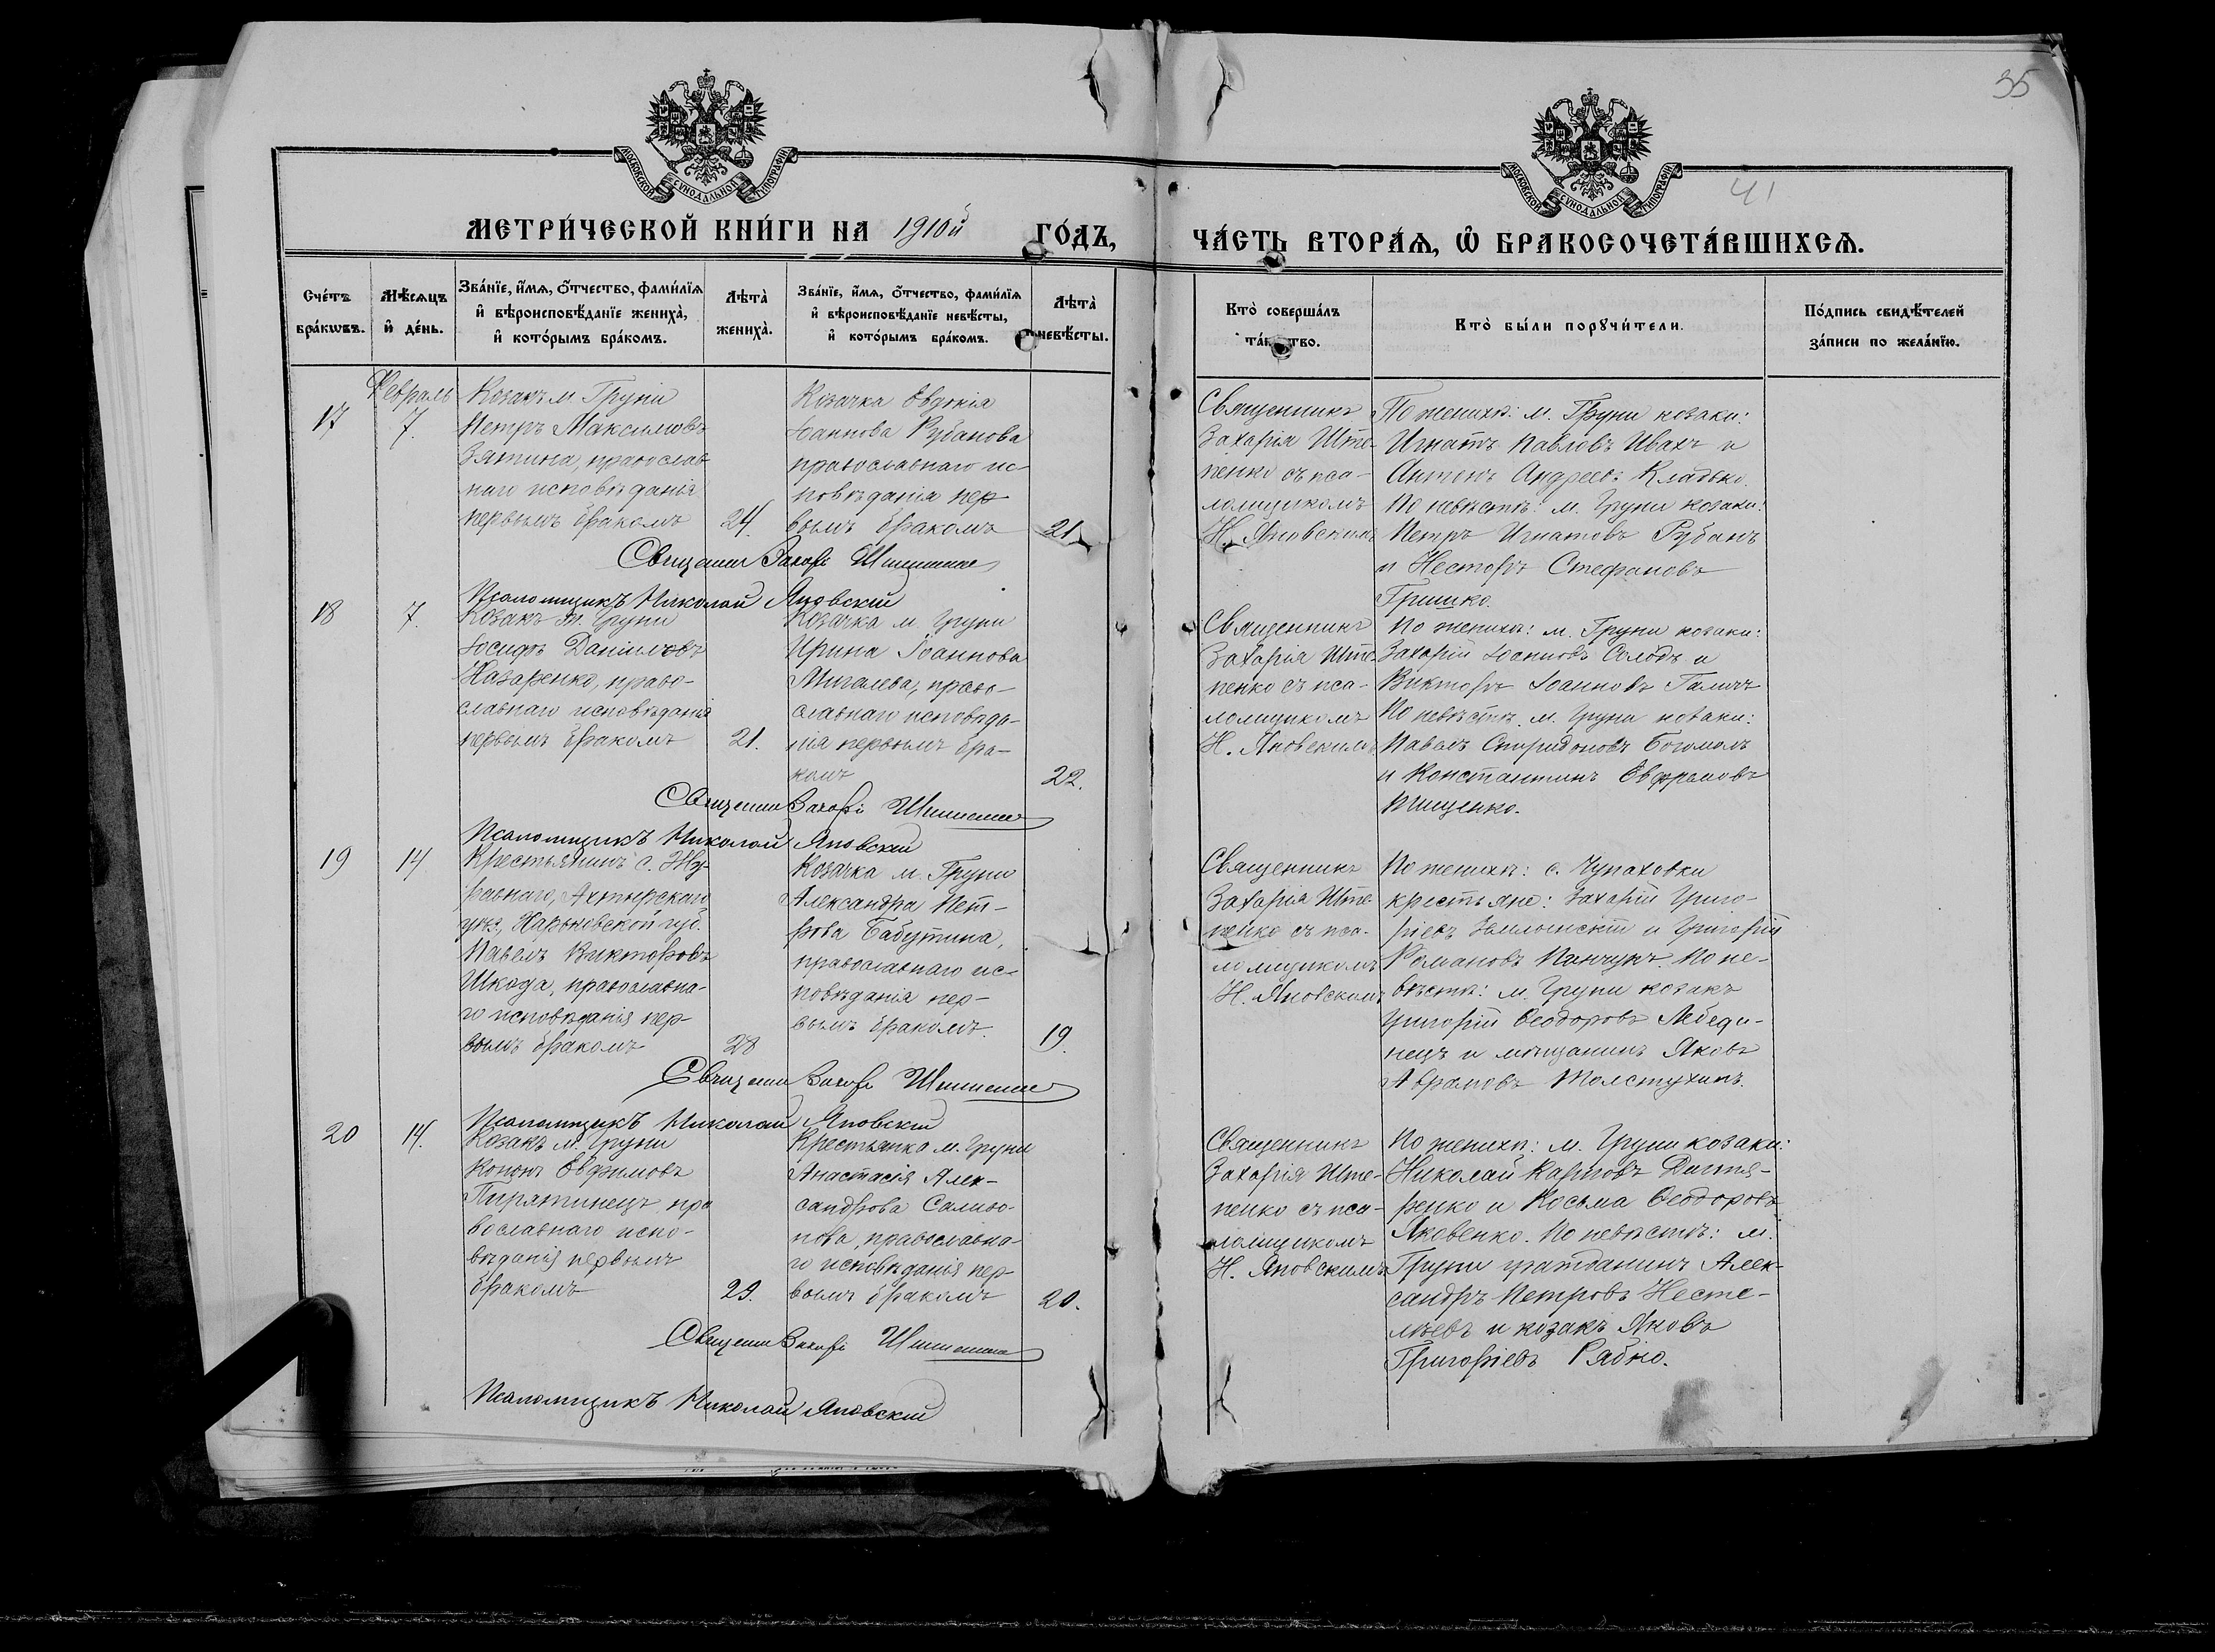 35
41
МОСКОВСКОЙ СѴНОДАЛЬНОЙ ТИПОГРАФІИ
МОСКОВСКОЙ СѴНОДАЛЬНОЙ ТИПОГРАФІИ
МЕТРИ́ЧЕСКОЙ КНИ́ГИ НА 1910й ГО́ДЪ,
ЧА́СТЬ ВТОРА́Я, Ѡ БРАКОСОЧЕТА́ВШИХСЯ.
Сче́тъ бра́кѡвъ.
Мѣ́сяцъ и де́нь.
Зва́нїе, и́мя, о́тчество, фами́лїя и вѣроисповѣ́данїе жениха̀, и кото́рымъ бра́комъ.
Лѣта̀ жениха̀.
Зва́нїе, и́мя, о́тчество, фами́лїя и вѣроисповѣ́данїе невѣ́сты, и кото́рымъ бра́комъ.
Лѣта̀ невѣ́сты.
Кто̀ соверша́лъ
Кто̀ бы́ли порꙋчи́тели.
По́дпись свидѣ́телей за́писи по жела́нїю.
17
Февраль
7.
Козакъ м. Груни
Петръ Максимовъ
Зятина, православ
наго исповѣданія
первымъ бракомъ
24.
Козачка Евдокія
Іоаннова Рубанова
православнаго ис-
повѣданія пер
вымъ бракомъ
21.
Священник
Захарія Ште-
пенко съ пса-
ломщикомъ
Н. Яновским
По женихѣ: м. Груни козаки:
Игнатъ Павловъ Ивахъ и
Антонъ Андреевъ Кладько.
По невѣстѣ: м. Груни козаки:
Петръ Игнатовъ Рубанъ
и Несторъ Стефановъ
Гришко.
Псаломщикъ Николай Яновскій
18
7.
Козакъ м. Груни
Іосифъ Даніиловъ
Назаренко, право-
славнаго исповѣданія
первымъ бракомъ
21.
Козачка м. Груни
Ирина Іоаннова
Мигалева, право-
славнаго исповѣда-
нія первымъ бра-
комъ
22.
Священникъ
Захарія Ште-
пенко съ пса-
ломщикомъ
Н. Яновскимъ
По женихѣ: м. Груни козаки:
Захарій Іоанновъ Солодъ и
Викторъ Іоанновъ
По невѣстѣ. м. Груни козаки:
Павелъ Спиридоновъ Богомолъ
и Константинъ Евфремовъ
Тищенко.
Псаломщикъ Николай Яновскій
19
14
Крестьянинъ с. Жу-
равнаго, Ахтырскаго
уѣз, Харьковской губ.
Павелъ Викторовъ
Шкода, православна-
го исповѣданія пер-
вымъ бракомъ
28
Козачка м. Груни
Александра Пет-
рова Бабутина,
православнаго ис-
повѣданія пер-
вымъ бракомъ.
19.
Священникъ
Захарія Ште-
пенко съ пса-
ломщикомъ
Н. Яновскимъ
По женихѣ: с. Чупаховки
крестьяне: Захарій Григо-
ріевъ и Григорій
Романовъ Панчукъ. По не-
вѣстѣ: м. Груни козакъ
Григорій Ѳеодоровъ Лебеди-
нецъ и мѣщанинъ Яковъ
Аврамовъ Толстухинъ.
Псаломщикъ Николай Яновскій
20
14.
Козакъ м. Груни
Кононъ Евфимовъ
Пирятинецъ, пра
вославнаго испо-
вѣданія первымъ
бракомъ
23.
Крестьянка м. Груни
Анастасія Алек-
сандрова
православна-
го исповѣданія пер
вымъ бракомъ
20.
Священникъ
Захарія Ште-
пенко съ пса-
ломщикомъ
Н. Яновскимъ
По женихѣ: м. Груни козаки:
Николай Карповъ Дигтя-
ренко и Косьма Ѳеодоровъ
Яковенко. По невѣстѣ: м.
Груни гражданинъ Алек-
сандръ Петровъ Несте-
лѣевъ и козакъ Яковъ
Григоріевъ Рябко.
Псаломщикъ Николай Яновскій